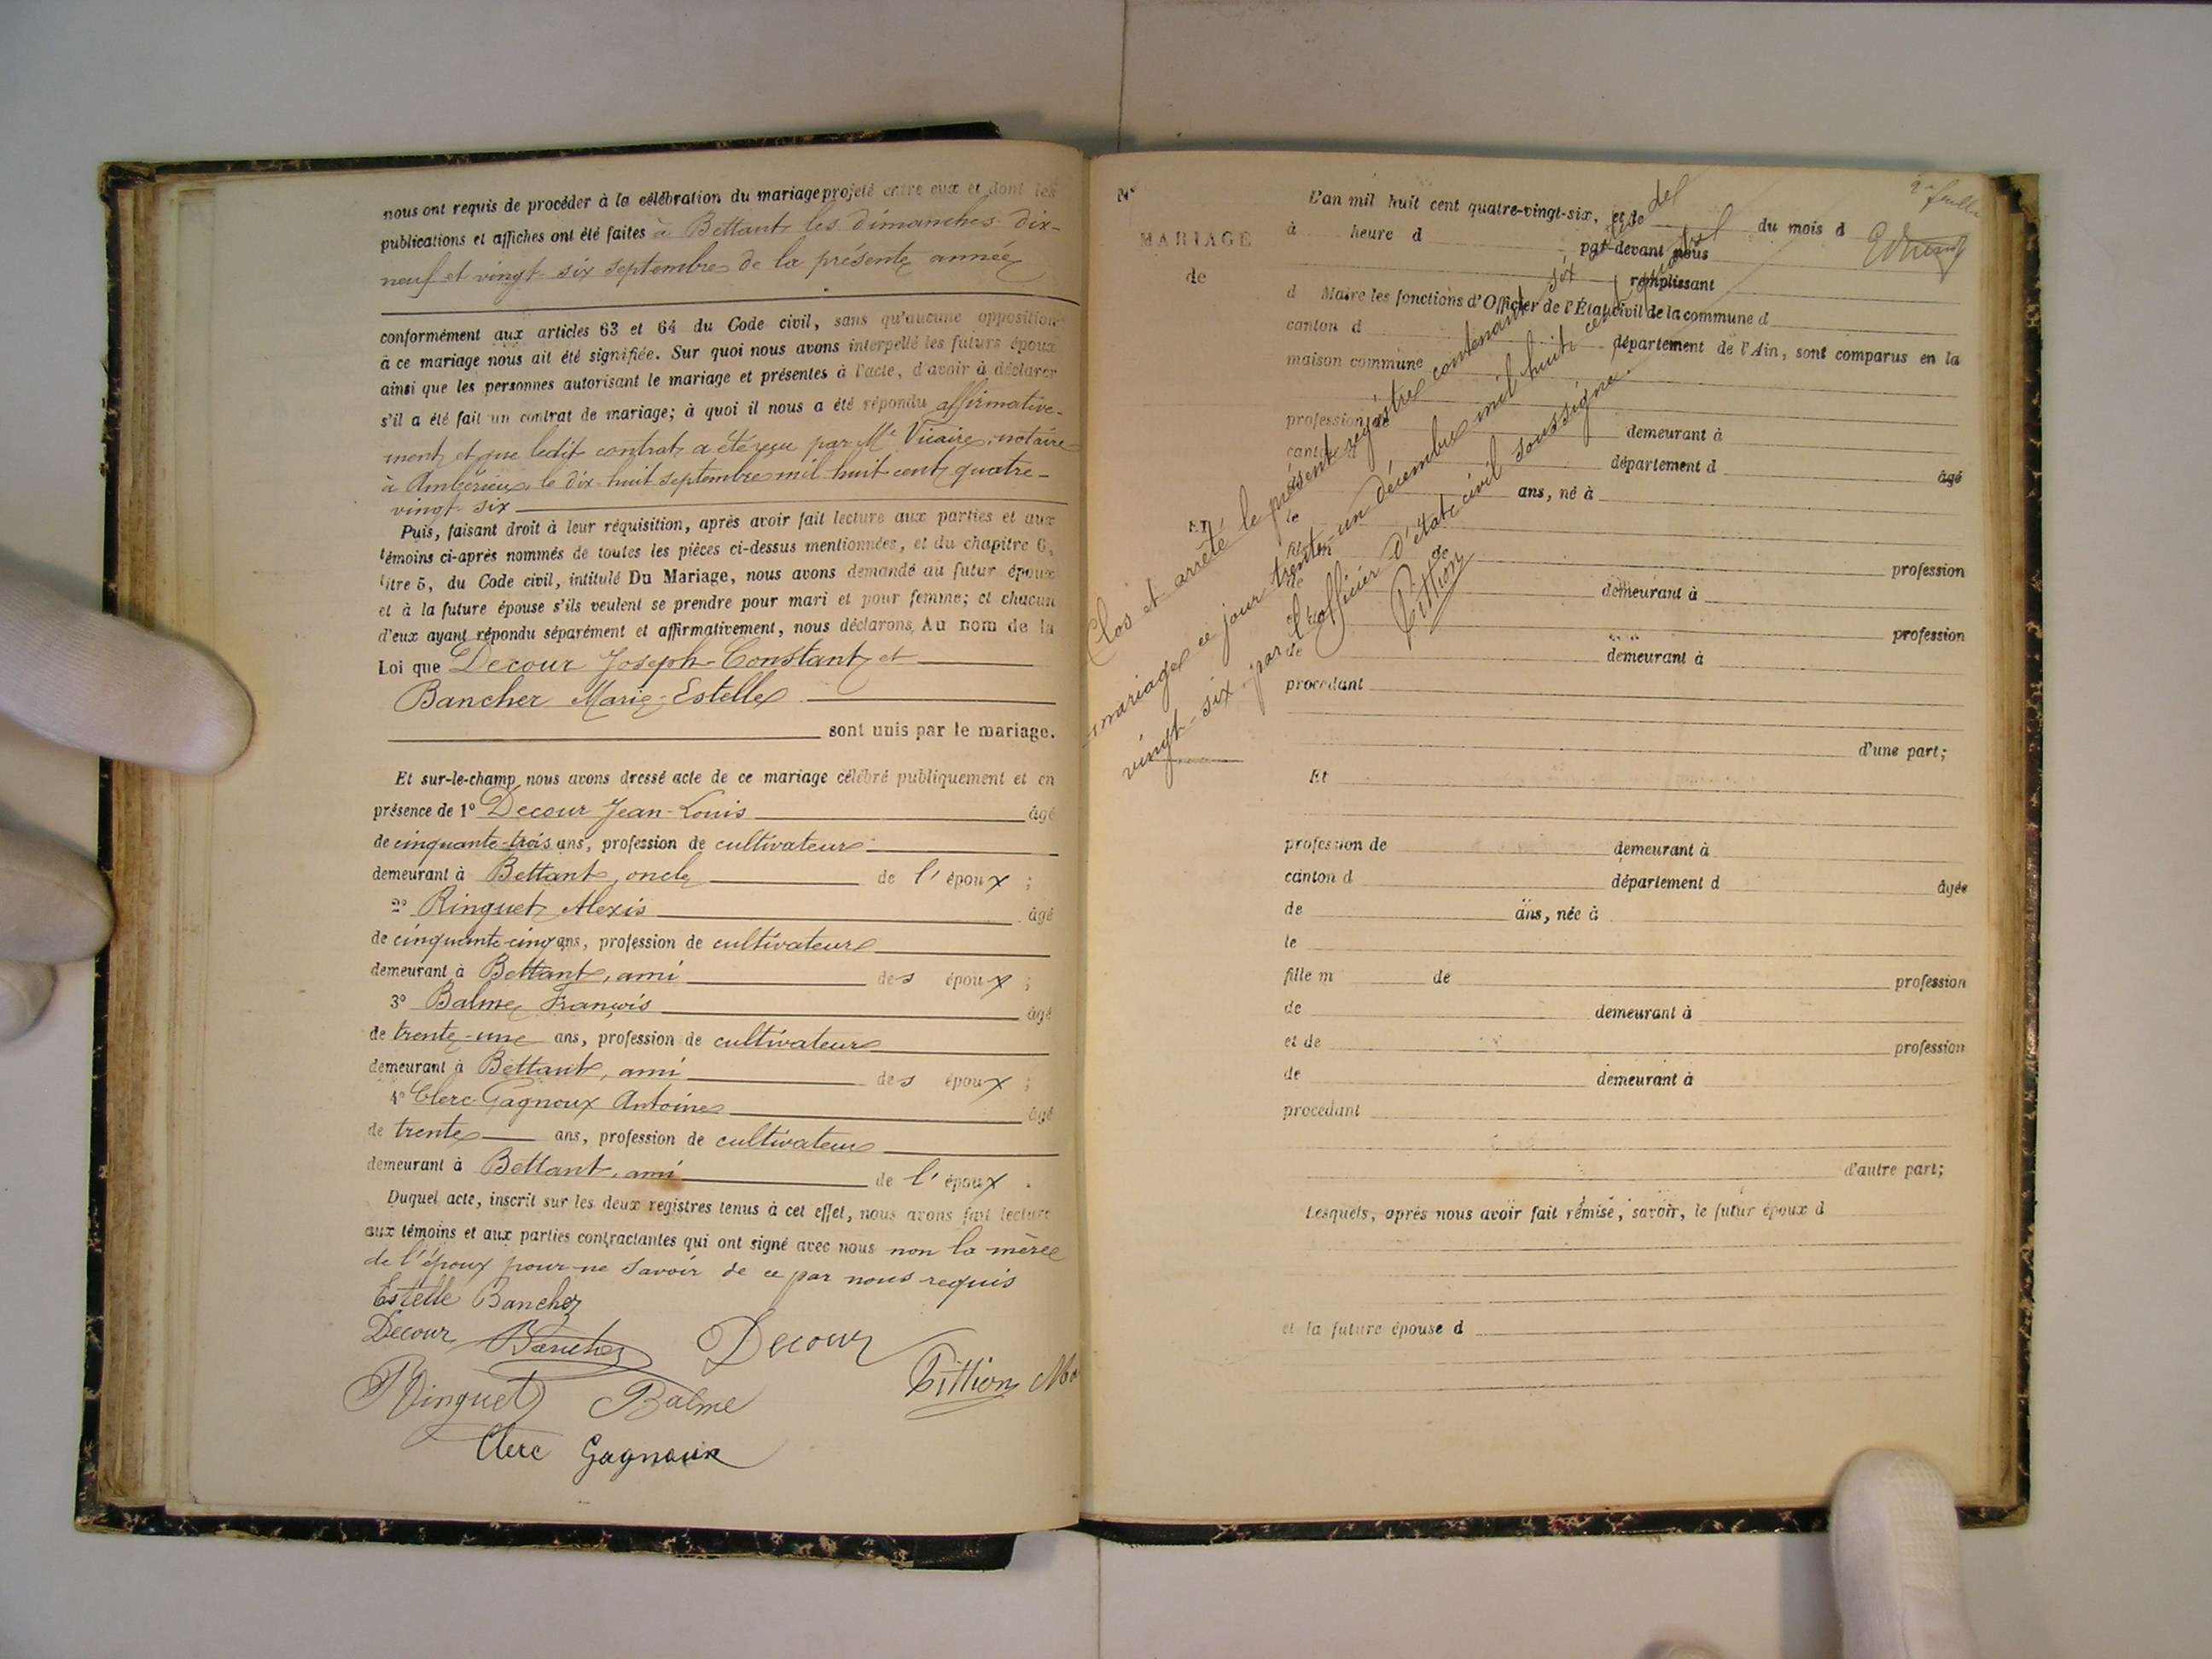 nous ont requis de procéder à la célébration du mariage projeté entre eux et dont les
publications et affiches ont été faites à Bettant les dimanches dix-
neuf et vingt-six septembre de la présente année
conformément aux articles 63 et 64 du Code civil, sans qu'aucune opposition
à ce mariage nous ait été signifiée. Sur quoi nous avons interpellé les futurs époux
ainsi que les personnes autorisant le mariage et présentes à l'acte, d'avoir à déclarer
s'il a été fait un contrat de mariage; à quoi il nous a été répondu affirmative-
ment et que ledit contrat a été reçu par Me Vicaire, notaire
à Ambérieux, le dix-huit septembre mil huit cent quatre-
vingt-six
Puis, faisant droit à leur réquisition, après avoir fait lecture aux parties et aux
témoins ci-après nommés de toutes les pièces ci-dessus mentionnées, et du chapitre 6,
titre 5, du Code civil, intitulé Du Mariage, nous avons demandé au futur époux
et à la future épouse s'ils veulent se prendre pour mari et pour femme; et chacun
d'eux ayant répondu séparément et affirmativement, nous déclarons, Au nom de la
Loi que Decour Joseph-Constant et
Bancher Marie-Estelle
sont unis par le mariage.
Et sur-le-champ nous avons dressé acte de ce mariage célébré publiquement et en
présence de 1° Decour Jean-Louis âgé
de cinquante-trois ans, profession de cultivateur
demeurant à Bettant, oncle de l'époux ;
2° Ringuet Alexis âgé
de cinquante-cinq ans, profession de cultivateur
demeurant à Bettant, ami des époux ;
3° Balme François âgé
de trente-une ans, profession de cultivateur
demeurant à Bettant, ami des époux ;
4° Clerc Gagnoux Antoine âgé
de trente ans, profession de cultivateur
demeurant à Bettant, ami de l'époux .
Duquel acte, inscrit sur les deux registres tenus à cet effet, nous avons fait lecture
aux témoins et aux parties contractantes qui ont signé avec nous non la mère
de l'époux pour ne savoir de ce par nous requis
Estelle Bancher
Decour Bancher Decour
Ringuet Balme Tittion
Clerc Gagnoux
N°
MARIAGE
de
ET
2e feuille
L'an mil huit cent quatre-vingt-six, et le du mois d
à heure d par-devant nous
remplissant
d Maire les fonctions d'Officier de l'État civil de la commune d
canton d département de l'Ain, sont comparus en la
maison commune
profession de demeurant à
canton d département d âgé
de ans, né à
le
fils m de profession
de demeurant à
et de profession
de demeurant à
procédant
d'une part;
Et
profession de demeurant à
canton d département d âgée
de ans, née à
le
fille m de profession
de demeurant à
et de profession
de demeurant à
procédant
d'autre part;
Lesquels, après nous avoir fait remise, savoir, le futur époux d
et la future épouse d
Clos et arrêté le présent registre contenant six
mariages ce jour trente-un décembre mil huit cent quatre
vingt-six par l'officier d'état civil soussigné.
Tittion